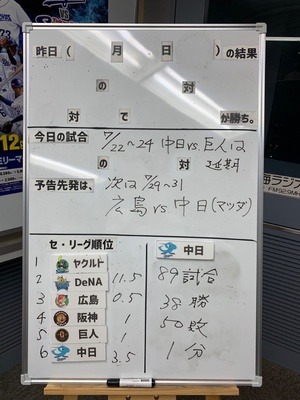 昨日( 月 日 )の結果
の 対
対 で が勝ち。
今日の試合 7/22~24 中日vs.巨人は
の 対 延期
予告先発は、 次は 7/29~31
広島 vs. 中日(マツダ)
セ・リーグ順位
1 ヤクルト
2 DeNA 11.5
3 広島 0.5
4 阪神 1
5 巨人 1
6 中日 3.5
中日
89試合
38勝
50敗
1分